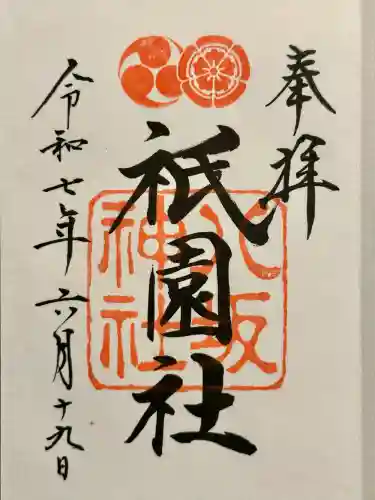 奉拝
八坂神社
祇園社
令和七年六月十九日